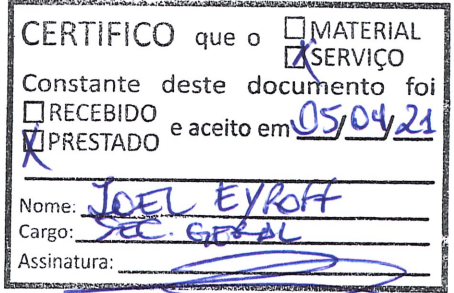 CERTIFICO que o ☐ MATERIAL
☒ SERVIÇO
Constante deste documento foi
☐ RECEBIDO
☒ PRESTADO e aceito em 05/04/21
Nome: JOEL EYROFF
Cargo: SEC. GERAL
Assinatura: